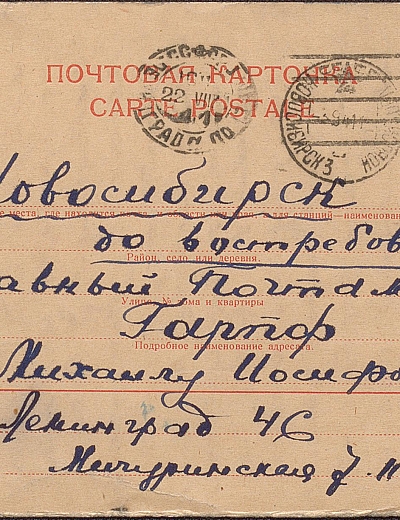 ПОЧТОВАЯ КАРТОЧКА
CARTE POSTALE
22 VIII
41
Новосибирск
где находится почта, и области или края, а для станций—наименование
до востребов
Район, село или деревня.
авный Почтам
Улица, № дома и квартиры
Гартоф
Подробное наименование адресата.
Михаилу Иосифо
Ленинград 46
Мичуринская